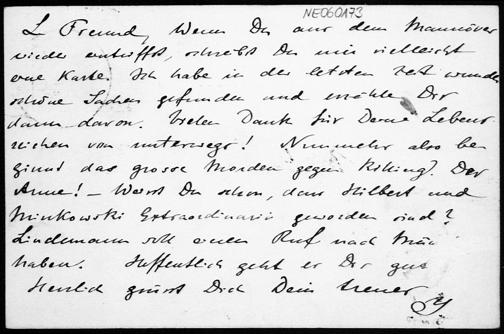 NE060173
L. Freund, Wenn Du aus dem Mannöver
wieder eintriffst, schreibst Du mir vielleicht
eine Karte. Ich habe in der letzten Zeit wunder
schöne Sachen gefunden und erzähle Dir
dann davon. Vielen Dank für Deine Lebens
zeichen von unterwegs! Nunmehr also be
ginnt das grosse Morden gegen Killing? Der
Arme! – Weisst Du schon, dass Hilbert und
Minkowski Extraordinarii geworden sind?
Lindemann soll einen Ruf nach Mün
haben. Hoffentlich geht es Dir gut
Herzlich grüsst Dich Dein treuer